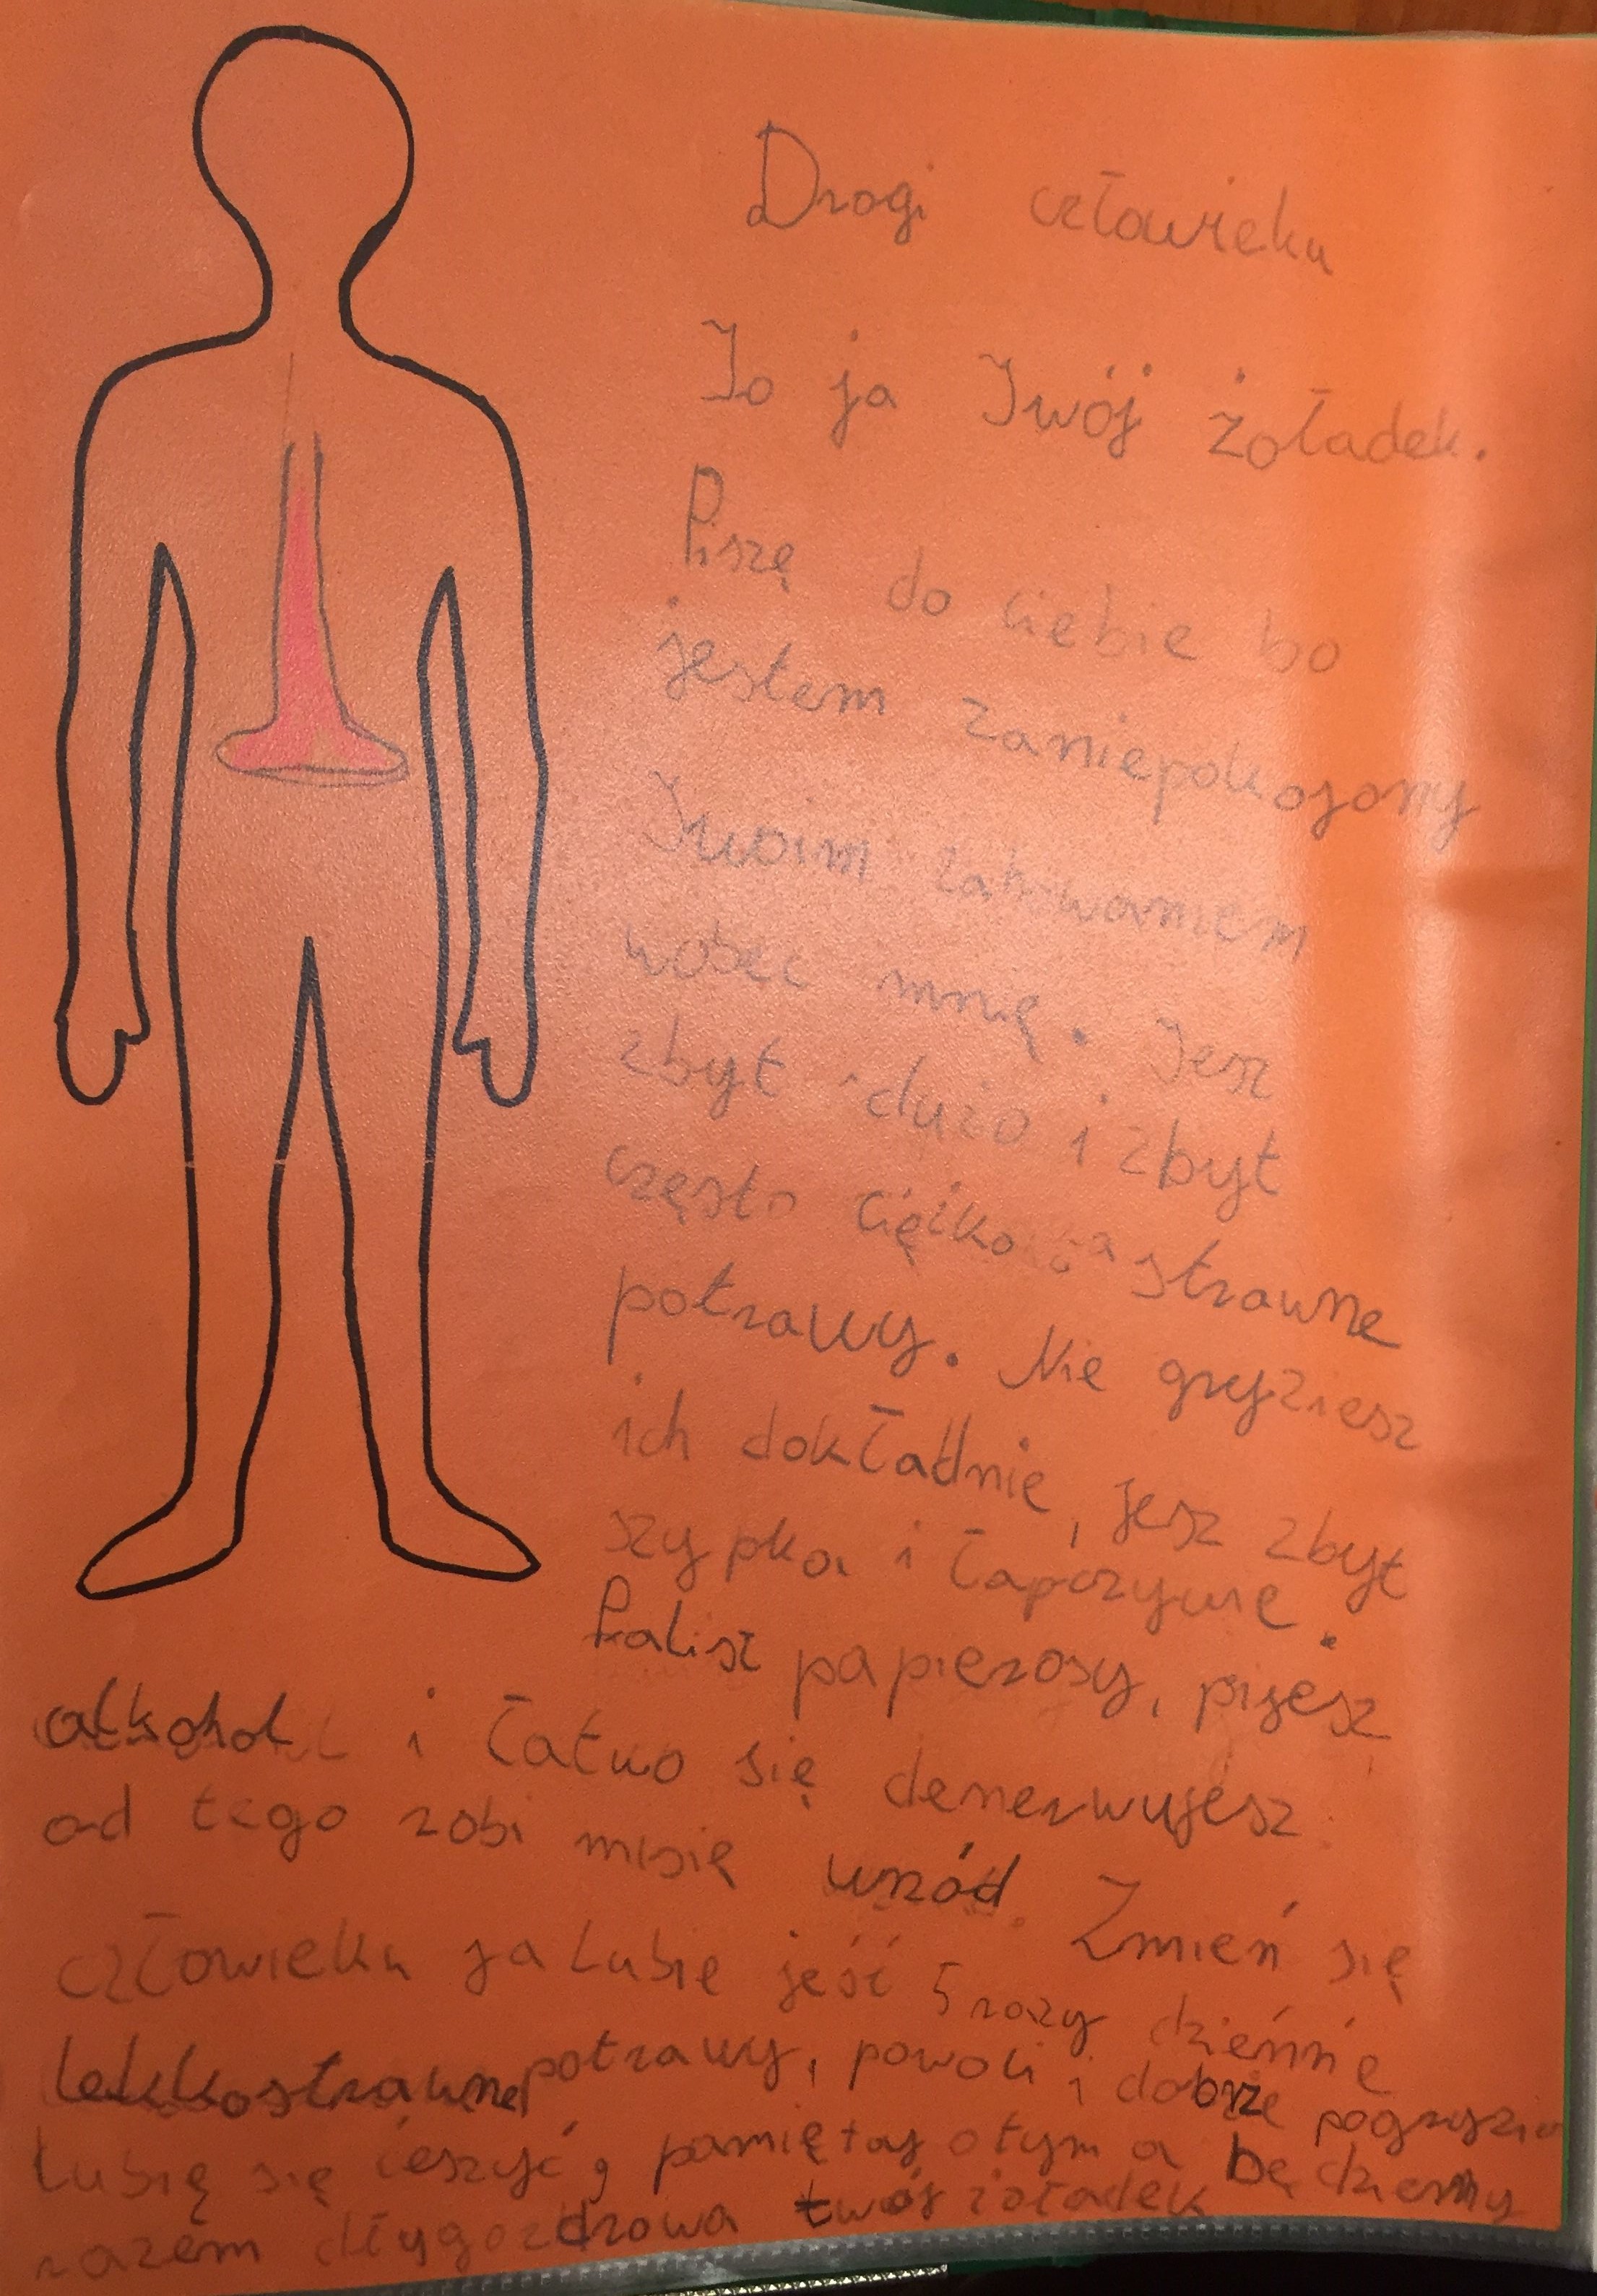 Drogi człowieku
To ja Twój żoładek.
Piszę do ciebie bo
jestem zaniepokojony
Twoim zahowaniem
wobec mnię. Jesz
zbyt dużo i zbyt
często ciężko strawne
potrawy. Nie gryziesz
ich dokładnie, jesz zbyt
szypko i łapczywie.
Palisz papierosy, pijesz
alkohol i łatwo się denerwujesz
od tego robi misię wrzód. Zmień się
człowieku ja lubię jeść 5 razy dzieńnie
lekkostrawne potrawy, powoli i dobrze
lubię się cieszyć, pamiętaj otym a będziemy
razem długo zdrowa twój żoładek